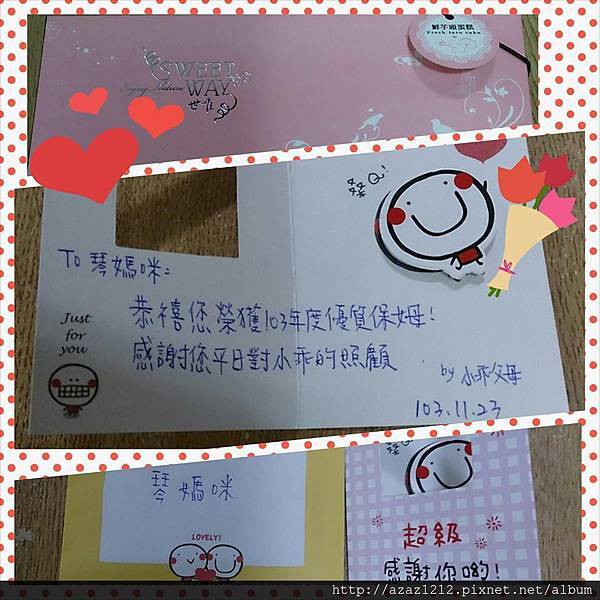 鮮芋頭蛋糕
Fresh taro cake
SWEET
WAY
Enjoy Nature
世唯
發Q!
To 琴媽咪:
Just
for
you
恭禧您榮獲103年度優質保姆!
感謝您平日對小乖的照顧
by 小乖父母
103.11.23
琴媽咪
LOVELY!
超級
感謝你喲!
http://azaz1212.pixnet.net/album